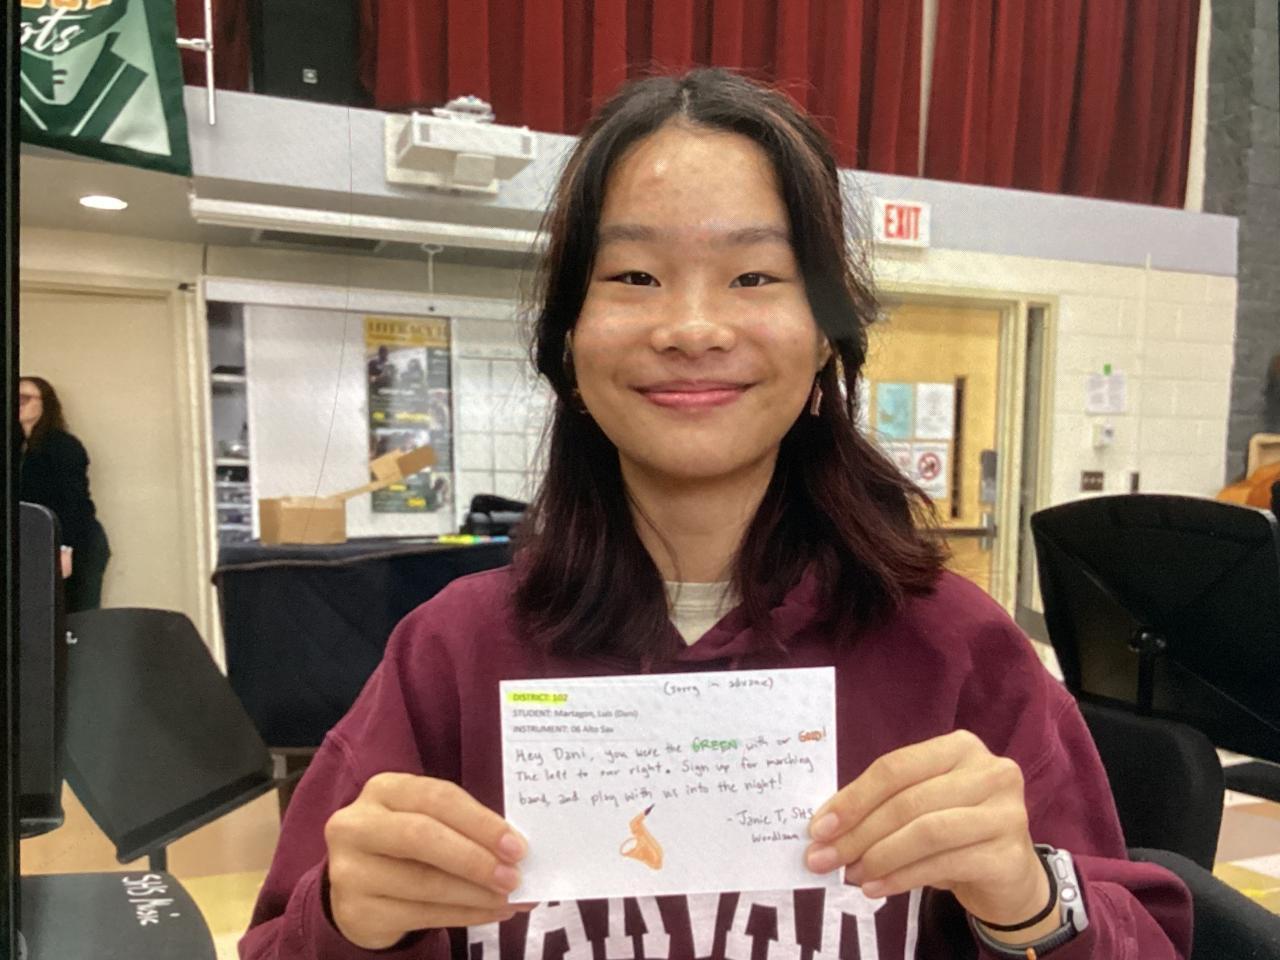 ots
EXIT
LITERACY
(sorry in advance)
DISTRICT: 102
STUDENT: Martagon, Luis (Dani)
INSTRUMENT: 06 Alto Sax
Hey Dani, you were the GREEN with our GOLD!
The left to our right. Sign up for marching
band, and play with us into the night!
- Janie T, SHS
HARVARD
SHS Music